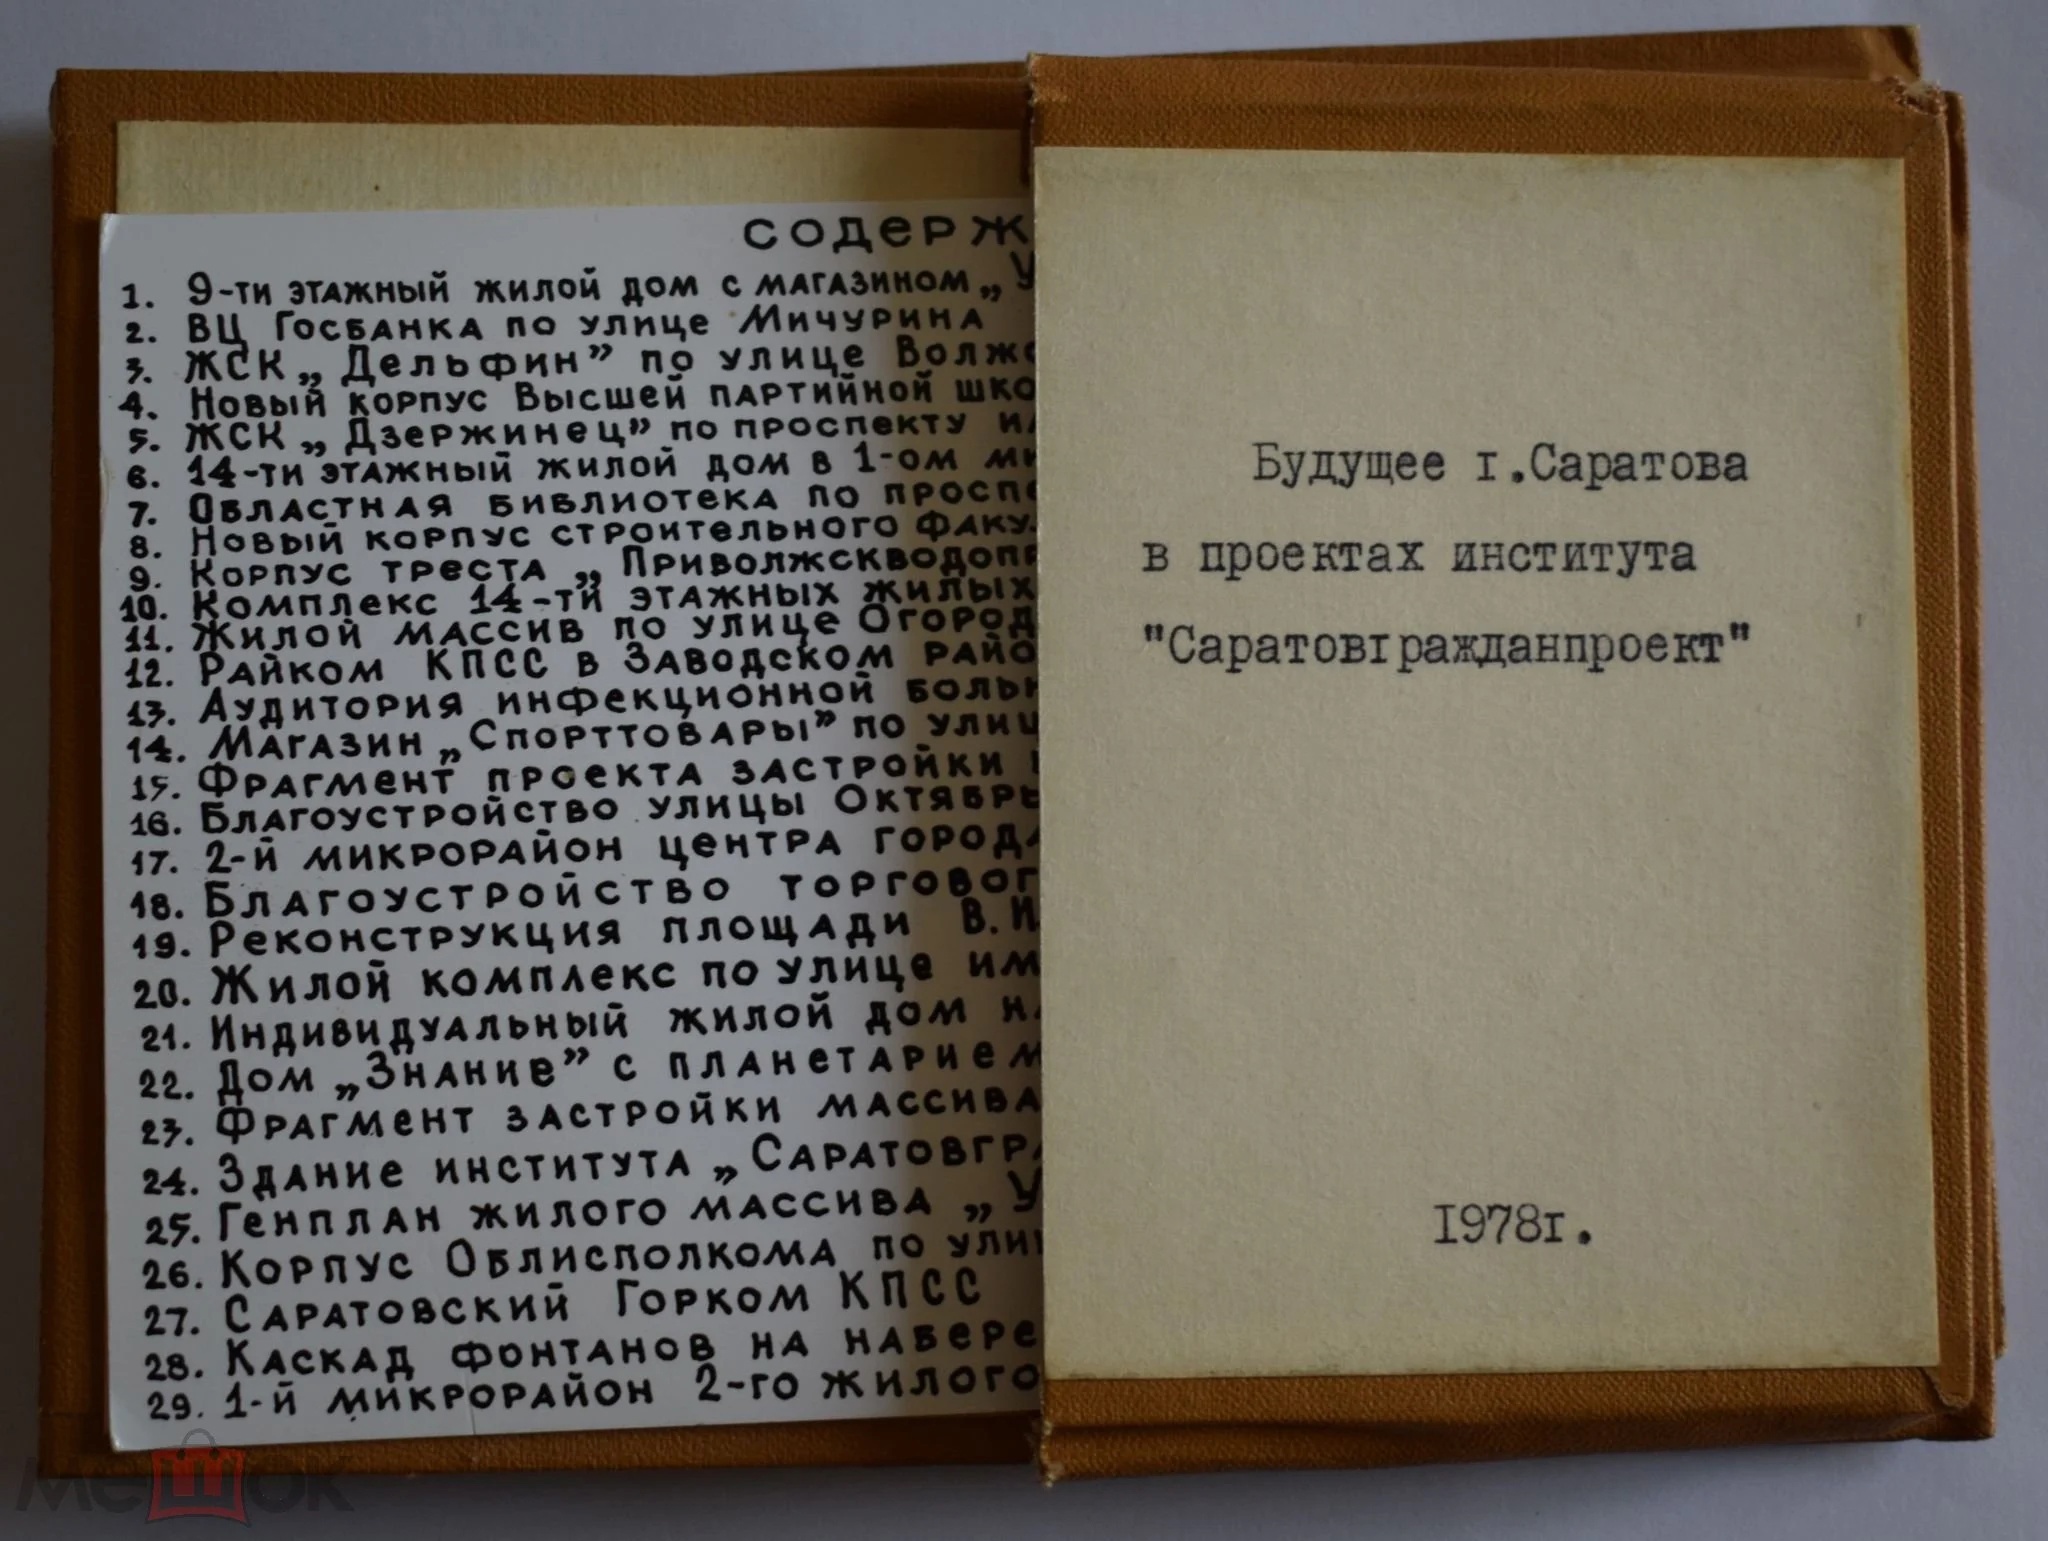 содерж
1. 9-ти этажный жилой дом с магазином „У
2. ВЦ Госбанка по улице Мичурина
3. ЖСК „Дельфин” по улице Волжс
4. Новый корпус Высшей партийной шко
5. ЖСК „Дзержинец” по проспекту
6. 14-ти этажный жилой дом в 1-ом ми
7. Областная библиотека по проспе
8. Новый корпус строительного факу
9. Корпус треста „Приволжскводопр
10. Комплекс 14-ти этажных жилых
11. Жилой массив по улице Огород
12. Райком КПСС в Заводском райо
13. Аудитория инфекционной больн
14. Магазин „Спорттовары” по улиц
15. Фрагмент проекта застройки
16. Благоустройство улицы Октябрь
17. 2-й микрорайон центра города
18. Благоустройство торговог
19. Реконструкция площади В.И.
20. Жилой комплекс по улице им
21. Индивидуальный жилой дом на
22. Дом „Знание” с планетарием
23. Фрагмент застройки массива
24. Здание института „Саратовгра
25. Генплан жилого массива „У
26. Корпус Облисполкома по ули
27. Саратовский Горком КПСС
28. Каскад фонтанов на набере
29. 1-й микрорайон 2-го жилого
Будущее г.Саратова
в проектах института
"Саратовгражданпроект"
1978г.
Мешок